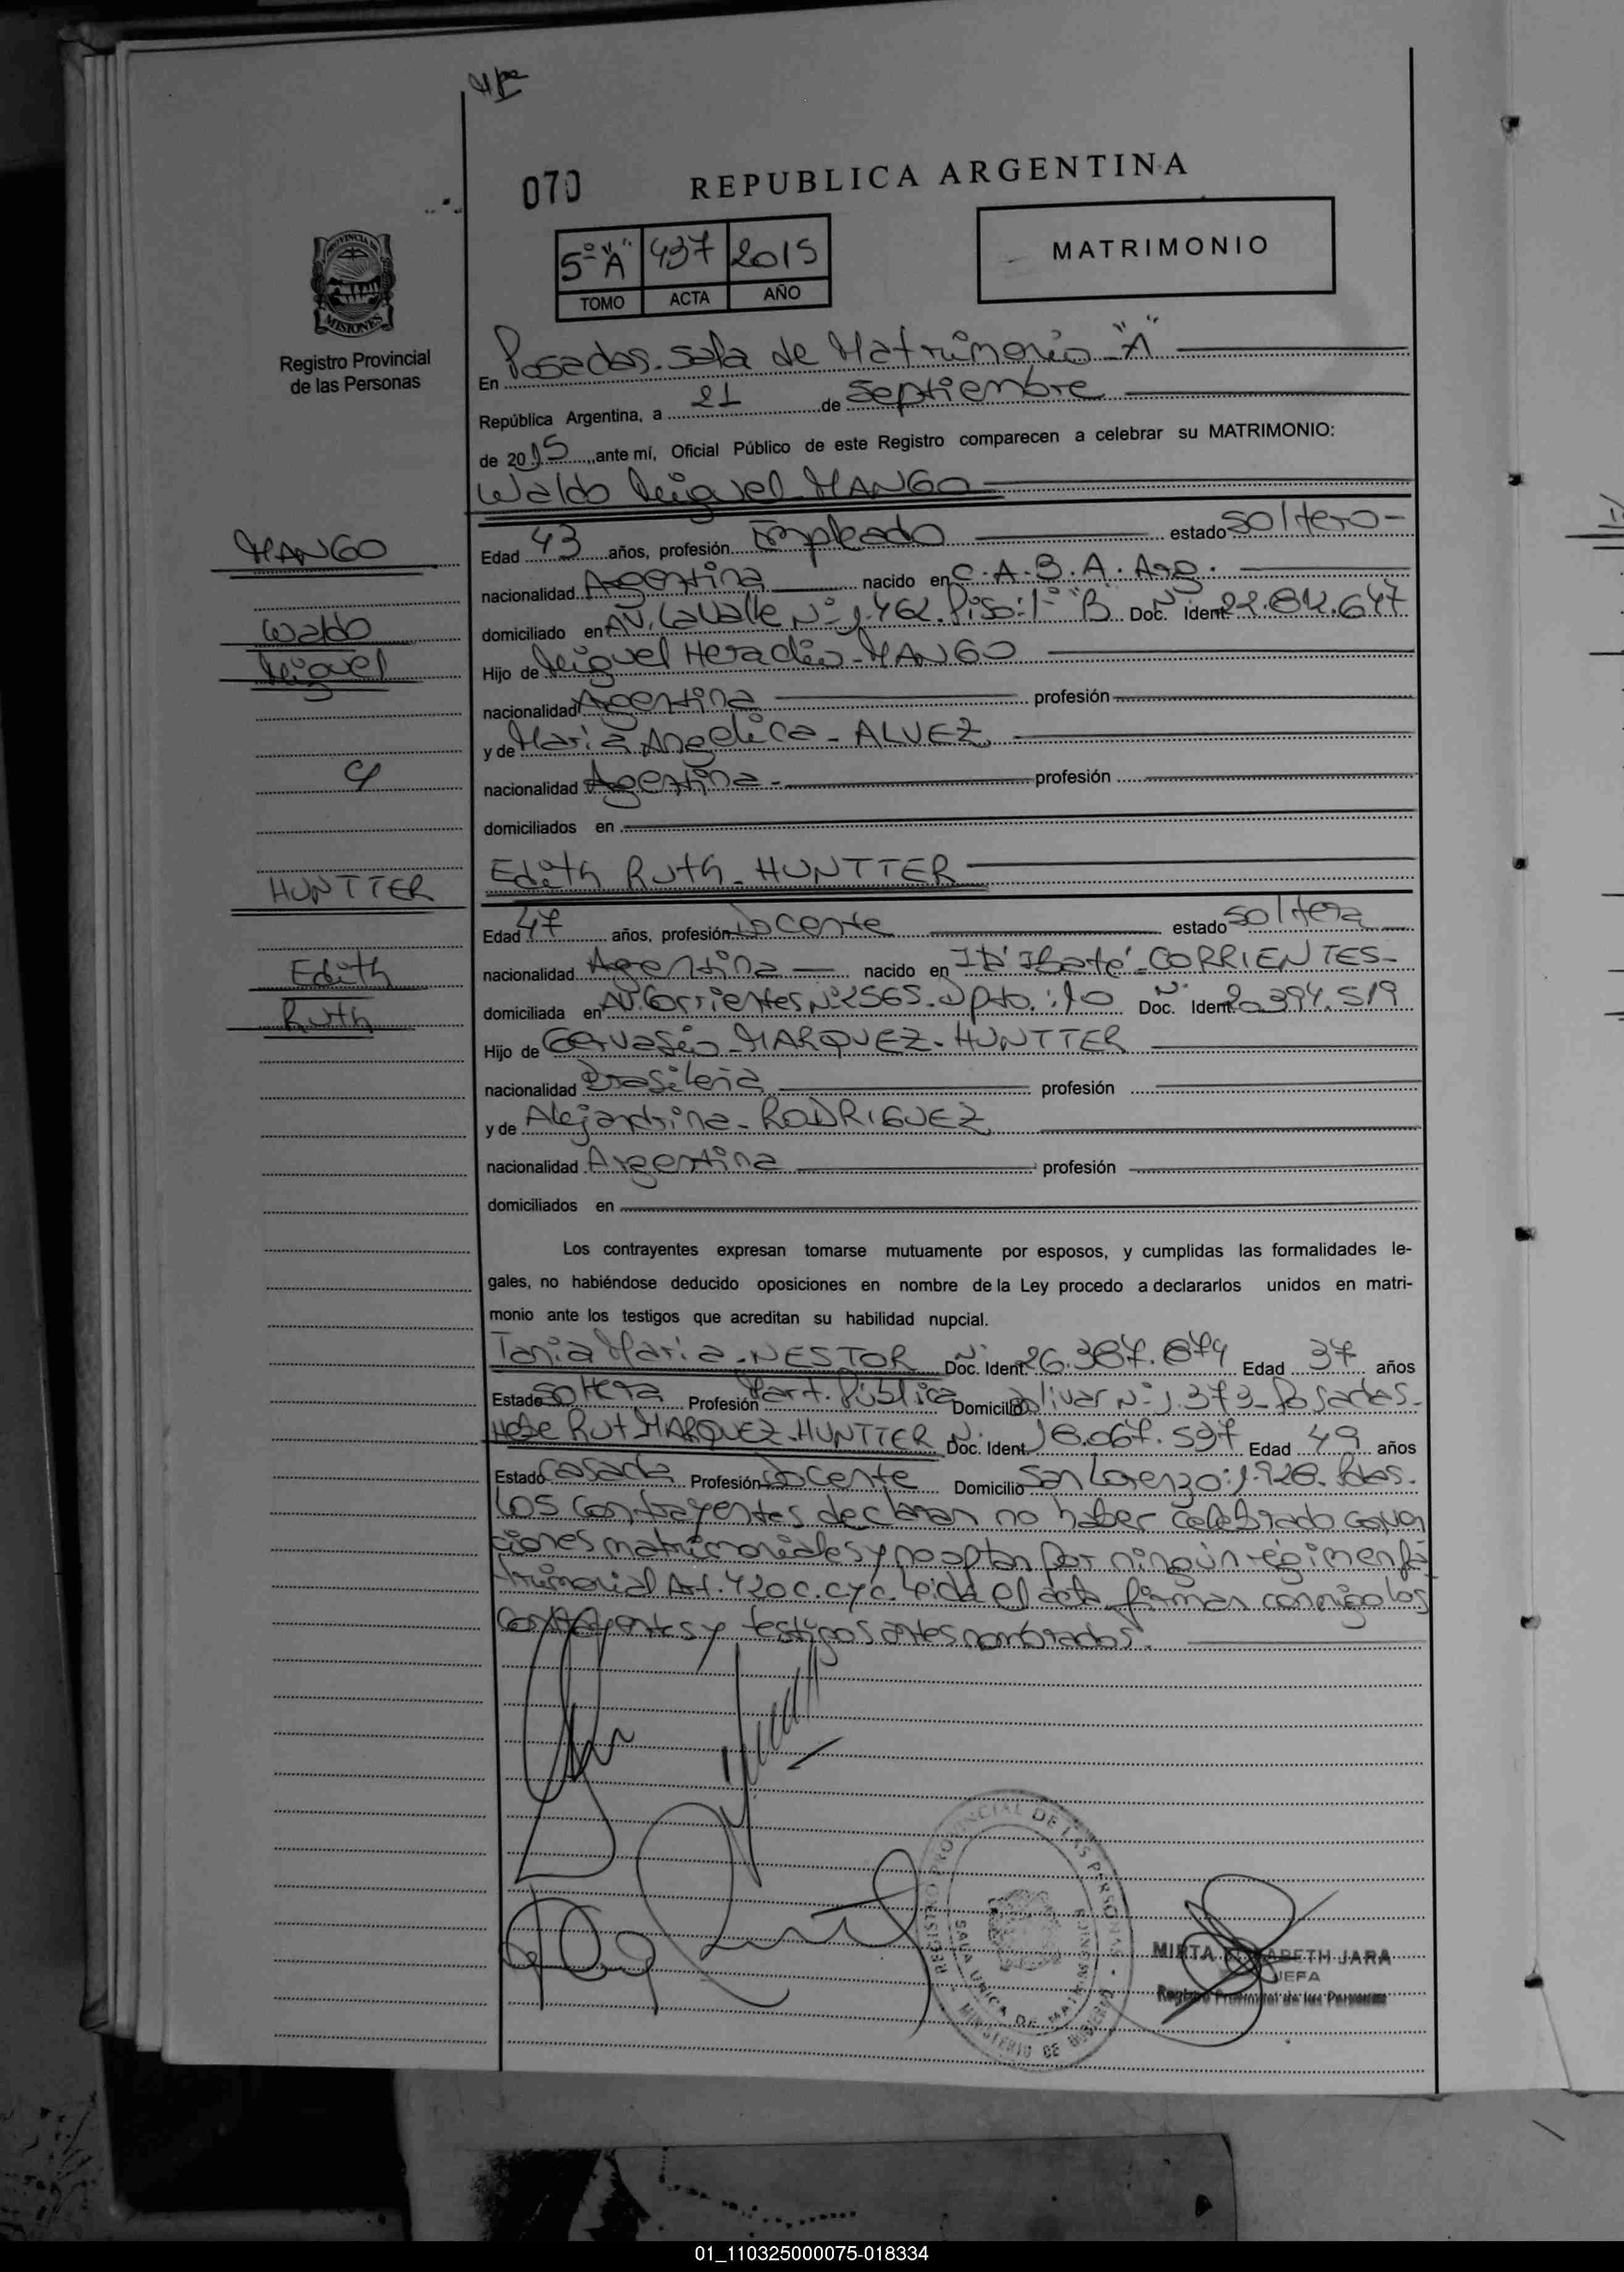 070
REPUBLICA ARGENTINA
5º "A" 437 2015
TOMO ACTA AÑO
MATRIMONIO
PROVINCIA DE
MISIONES
Registro Provincial
de las Personas
En Posadas. Sala de Matrimonio "A"
República Argentina, a 21 de Septiembre
de 2015, ante mí, Oficial Público de este Registro comparecen a celebrar su MATRIMONIO:
Waldo Miguel MANGO
MANGO
Waldo
Miguel
Edad 43 años, profesión Empleado estado soltero
nacionalidad Argentina nacido en C.A.B.A. Arg.
domiciliado en AV. Lavalle Nº 1.462. Piso: 1º "B" Doc. Ident.
Hijo de Miguel Heraclio MANGO
nacionalidad Argentina profesión
y de Maria Angelica - ALVEZ
nacionalidad Argentina profesión
domiciliados en
Y
Edith Ruth - HUNTTER
HUNTTER
Edith
Ruth
Edad 47 años, profesión Docente estado soltera
nacionalidad Argentina nacido en Itá Ibaté - CORRIENTES -
domiciliada en AV. Corrientes Nº 2565. Dpto.: 10 Doc. Ident. 20.394.519
Hijo de Gervasio MARQUEZ - HUNTTER
nacionalidad Brasileña profesión
y de Alejandrina - RODRIGUEZ
nacionalidad Argentina profesión
domiciliados en
Los contrayentes expresan tomarse mutuamente por esposos, y cumplidas las formalidades le-
gales, no habiéndose deducido oposiciones en nombre de la Ley procedo a declararlos unidos en matri-
monio ante los testigos que acreditan su habilidad nupcial.
Tania Maria - NESTOR Doc. Ident. 26.387.879 Edad 37 años
Estado Soltera Profesión Mart. Pública Domicilio Bolivar Nº 1.373 - Posadas -
Rut MARQUEZ - HUNTTER Doc. Ident. 18.067.597 Edad 49 años
Estado Casada Profesión Docente Domicilio San Lorenzo: 1.928. Pdas.
Los contrayentes declaran no haber celebrado conven
ciones matrimoniales y no optan por ningún régimen pa
trimonial Art. 420 C.C y C. Leida el acta firman conmigo los
contrayentes y testigos antes nombrados.
REGISTRO PROVINCIAL DE LAS PERSONAS
SALA UNICA DE MATRIMONIOS
MINISTERIO DE GOBIERNO
MIRTA ELIZABETH JARA
JEFA
Registro Provincial de las Personas
01_110325000075-018334